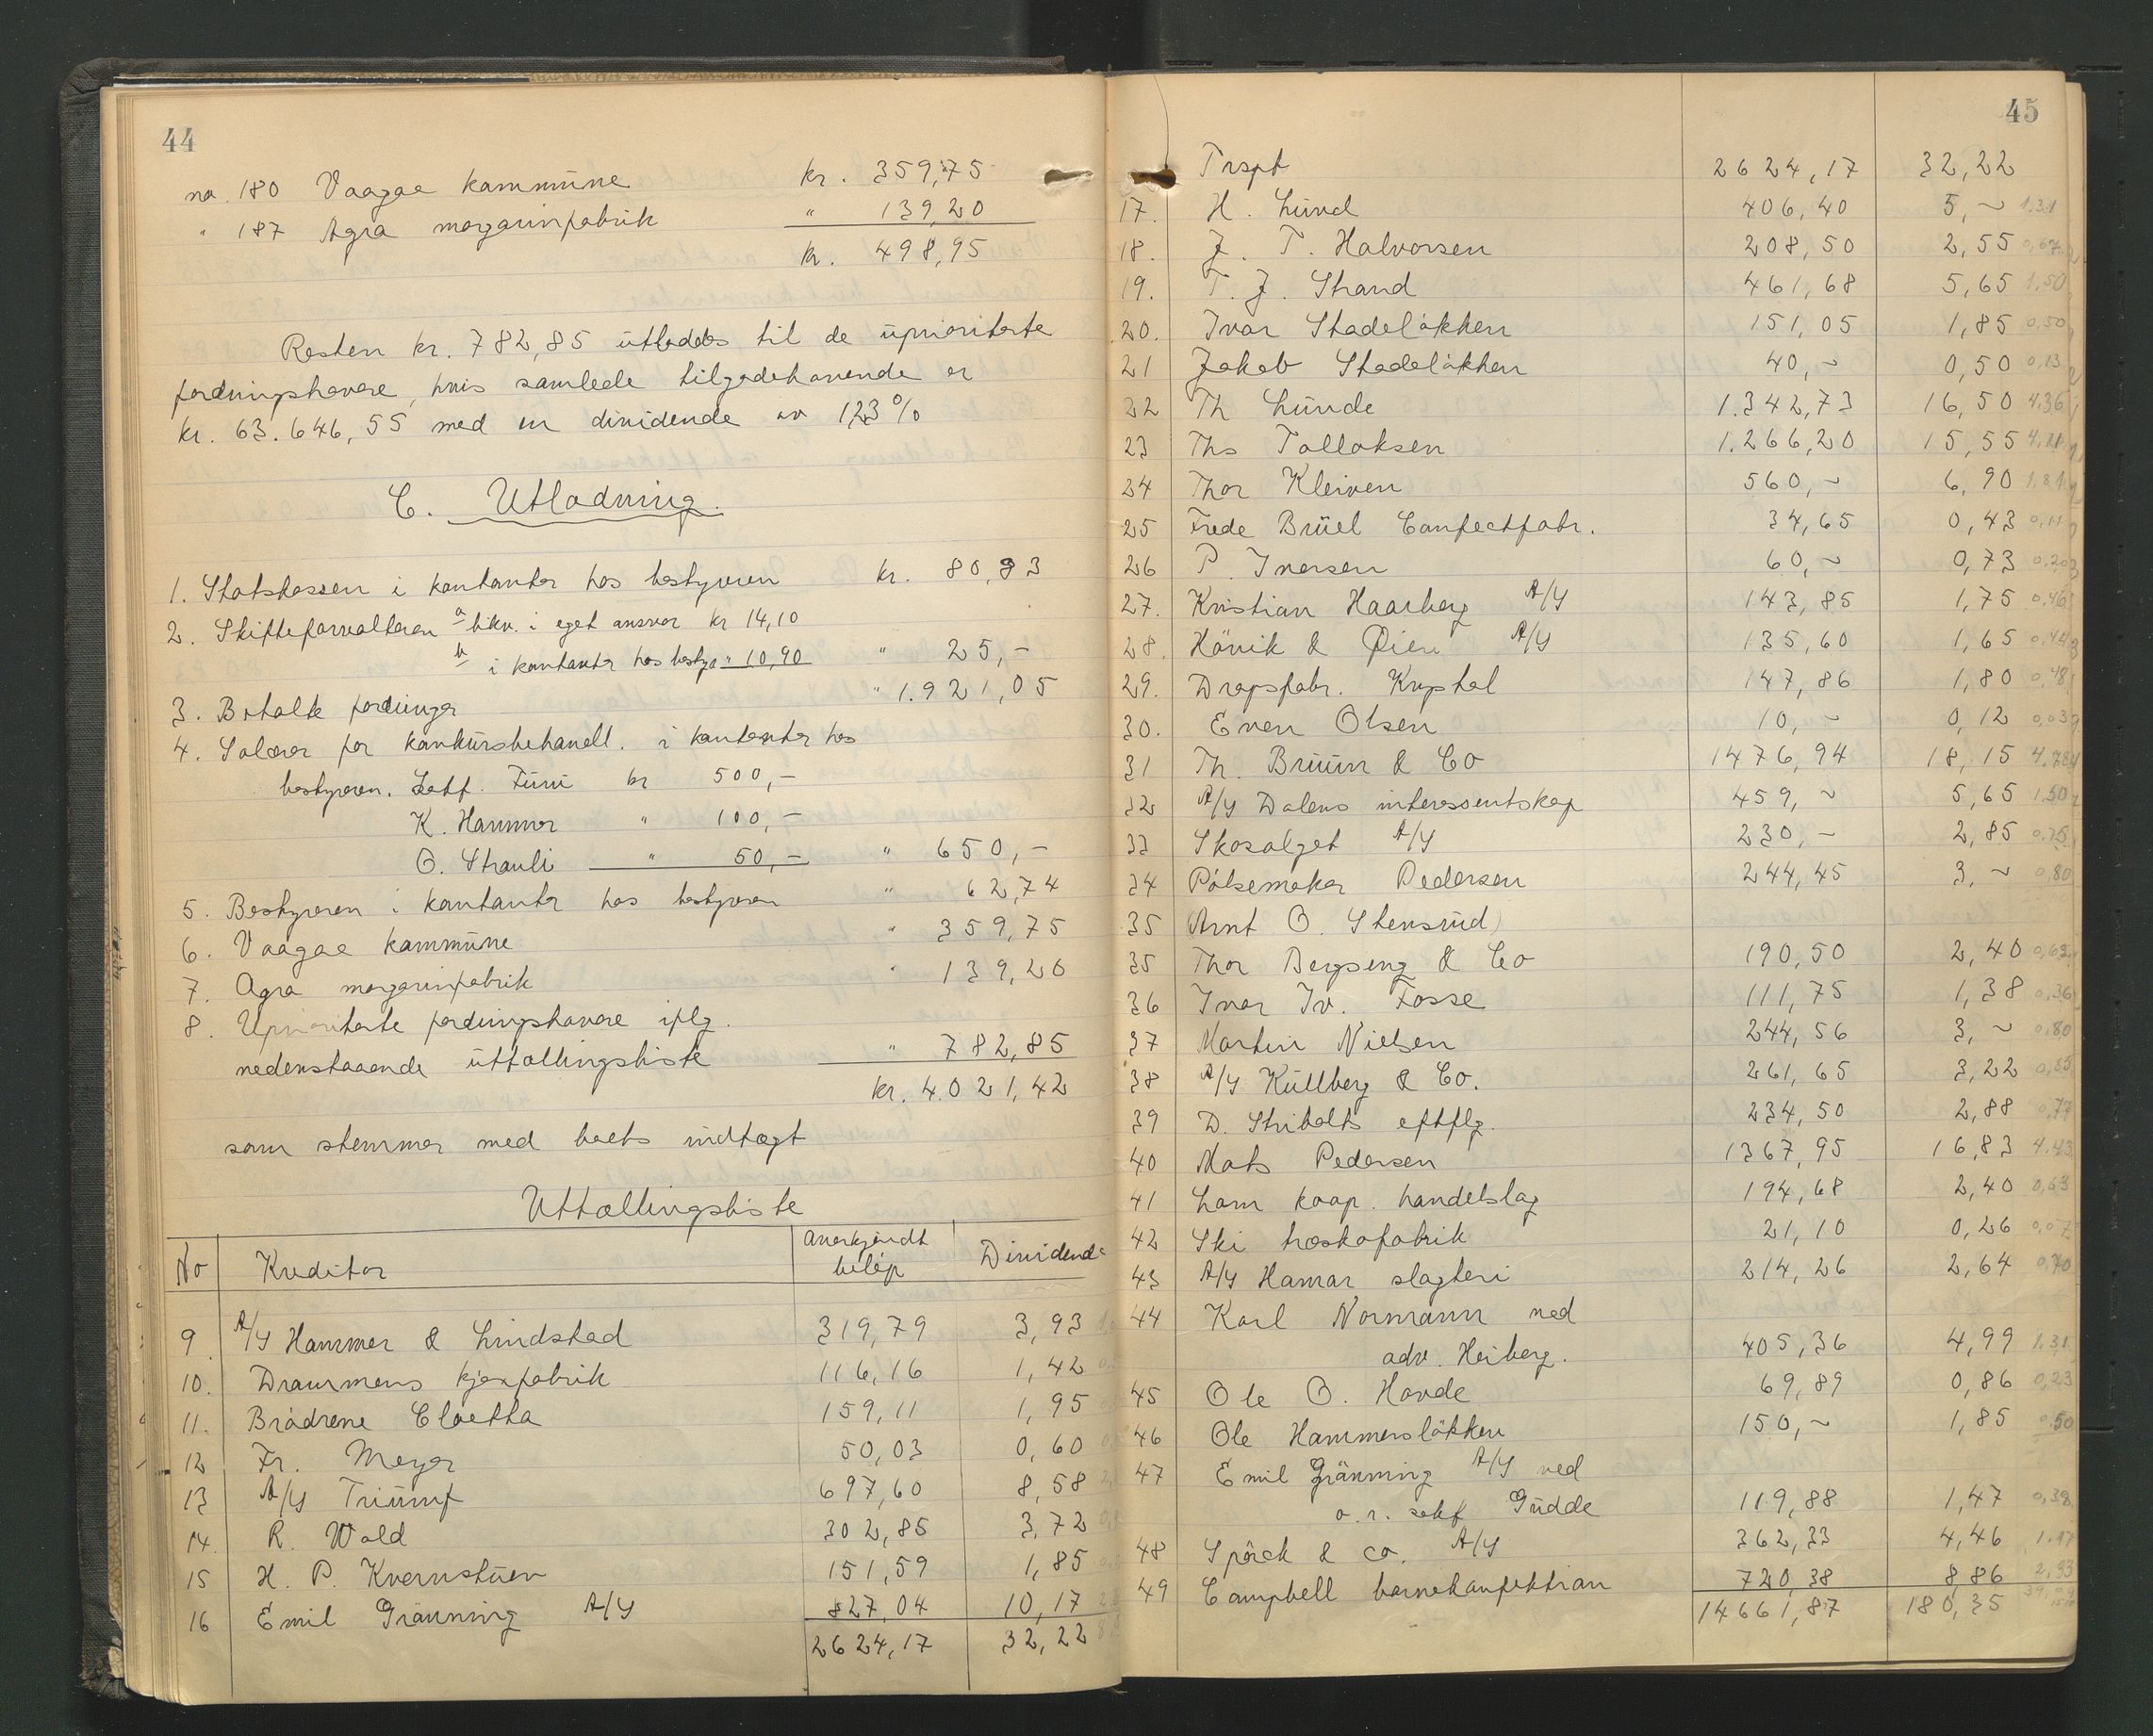 44
no. 180 Vaagaa kommune kr. 359,75
" 187 Agra margarinfabrik " 139,20
kr. 498,95
Resten kr. 782,85 utloddes til de uprioriterte
fordringshavere, hvis samlede tilgodehavende er
kr. 63.646,55 med en dividende av 1,23 %
C. Utlodning.
1. Statskassen i kontanter hos bestyreren kr. 80,83
2. Skifteforvalteren a likv. i eget ansvar kr 14,10
b i kontanter hos bestyr " 10,90 " 25,-
3. Betalte fordringer " 1.921,05
4. Salærer for konkursbehandl. i kontanter hos
bestyreren. Sakf. Furu kr 500,-
K. Hammer " 100,-
O. Strauli " 50,- " 650,-
5. Bestyreren i kontanter hos bestyreren " 62,74
6. Vaagaa kommune " 359,75
7. Agra margarinfabrik " 139,20
8. Uprioriterte fordringshavere iflg.
nedenstaaende uttællingsliste " 782,85
kr. 4.021,42
som stemmer med boets indtægt
Uttællingsliste
No Kreditor Anerkjendt beløp Dividende
9. A/S Hammer & Lindstad 319,79 3,93
10. Drammens kjexfabrik 116,16 1,42
11. Brødrene Cloetta 159,11 1,95
12 Fr. Meyer 50,03 0,60
13 A/S Triumf 697,60 8,58
14. R. Wold 302,85 3,72
15 H. P. Kvernstuen 151,59 1,85
16 Emil Grünning A/S 827,04 10,17
2624,17 32,22
45
Trspt 2624,17 32,22
17. H. Lund 406,40 5,~ 1,31
18. J. T. Halvorsen 208,50 2,55 0,67
19. T. J. Strand 461,68 5,65 1,50
20. Ivar Stadeløkken 151,05 1,85 0,50
21 Jakob Stadeløkken 40,~ 0,50 0,13
22 Th Lunde 1.342,73 16,50 4,36
23 Ths Tollaksen 1.266,20 15,55 4,11
24 Thor Kleiven 560,~ 6,90 1,81
25 Frede Brüel Confectfabr. 34,65 0,43 0,11
26 P. Iversen 60,~ 0,73 0,20
27. Kristian Haarberg A/S 143,85 1,75 0,46
28. Hövik & Øien A/S 135,60 1,65 0,44
29. Dropsfabr. Krystal 147,86 1,80 0,48
30. Even Olsen 10,~ 0,12 0,03
31 Th. Bruun & Co 1476,94 18,15 4,78
32 A/S Dalens interessentskap 459,~ 5,65 1,50
33 Skosalget A/S 230,- 2,85 0,75
34 Pölsemaker Pedersen 244,45 3,~ 0,80
35 (Arnt O. Stensrud)
35 Thor Bergseng & Co 190,50 2,40 0,62
36 Ivar Iv. Fosse 111,75 1,38 0,36
37 Martin Nielsen 244,56 3,~ 0,80
38 A/S Küllberg & Co. 261,65 3,22 0,85
39 D. Stribolts eftflg. 234,50 2,88 0,77
40 Mats Pedersen 1367,95 16,83 4,43
41 Lom koop. handelslag 194,68 2,40 0,63
42 Ski træskofabrik 21,10 0,26 0,07
43 A/S Hamar slagteri 214,26 2,64 0,70
44 Karl Normann ved
adv. Heiberg. 405,36 4,99 1,31
45 Ole O. Hovde 69,89 0,86 0,23
46 Ole Hammersløkken 150,~ 1,85 0,50
47 Emil Grünning A/S ved
o.r. sakf Gudde 119,88 1,47 0,39
48 Spörck & co. A/S 362,33 4,46 1,17
49 Campbell barnekonfektion 720,38 8,86 2,33
14661,87 180,35